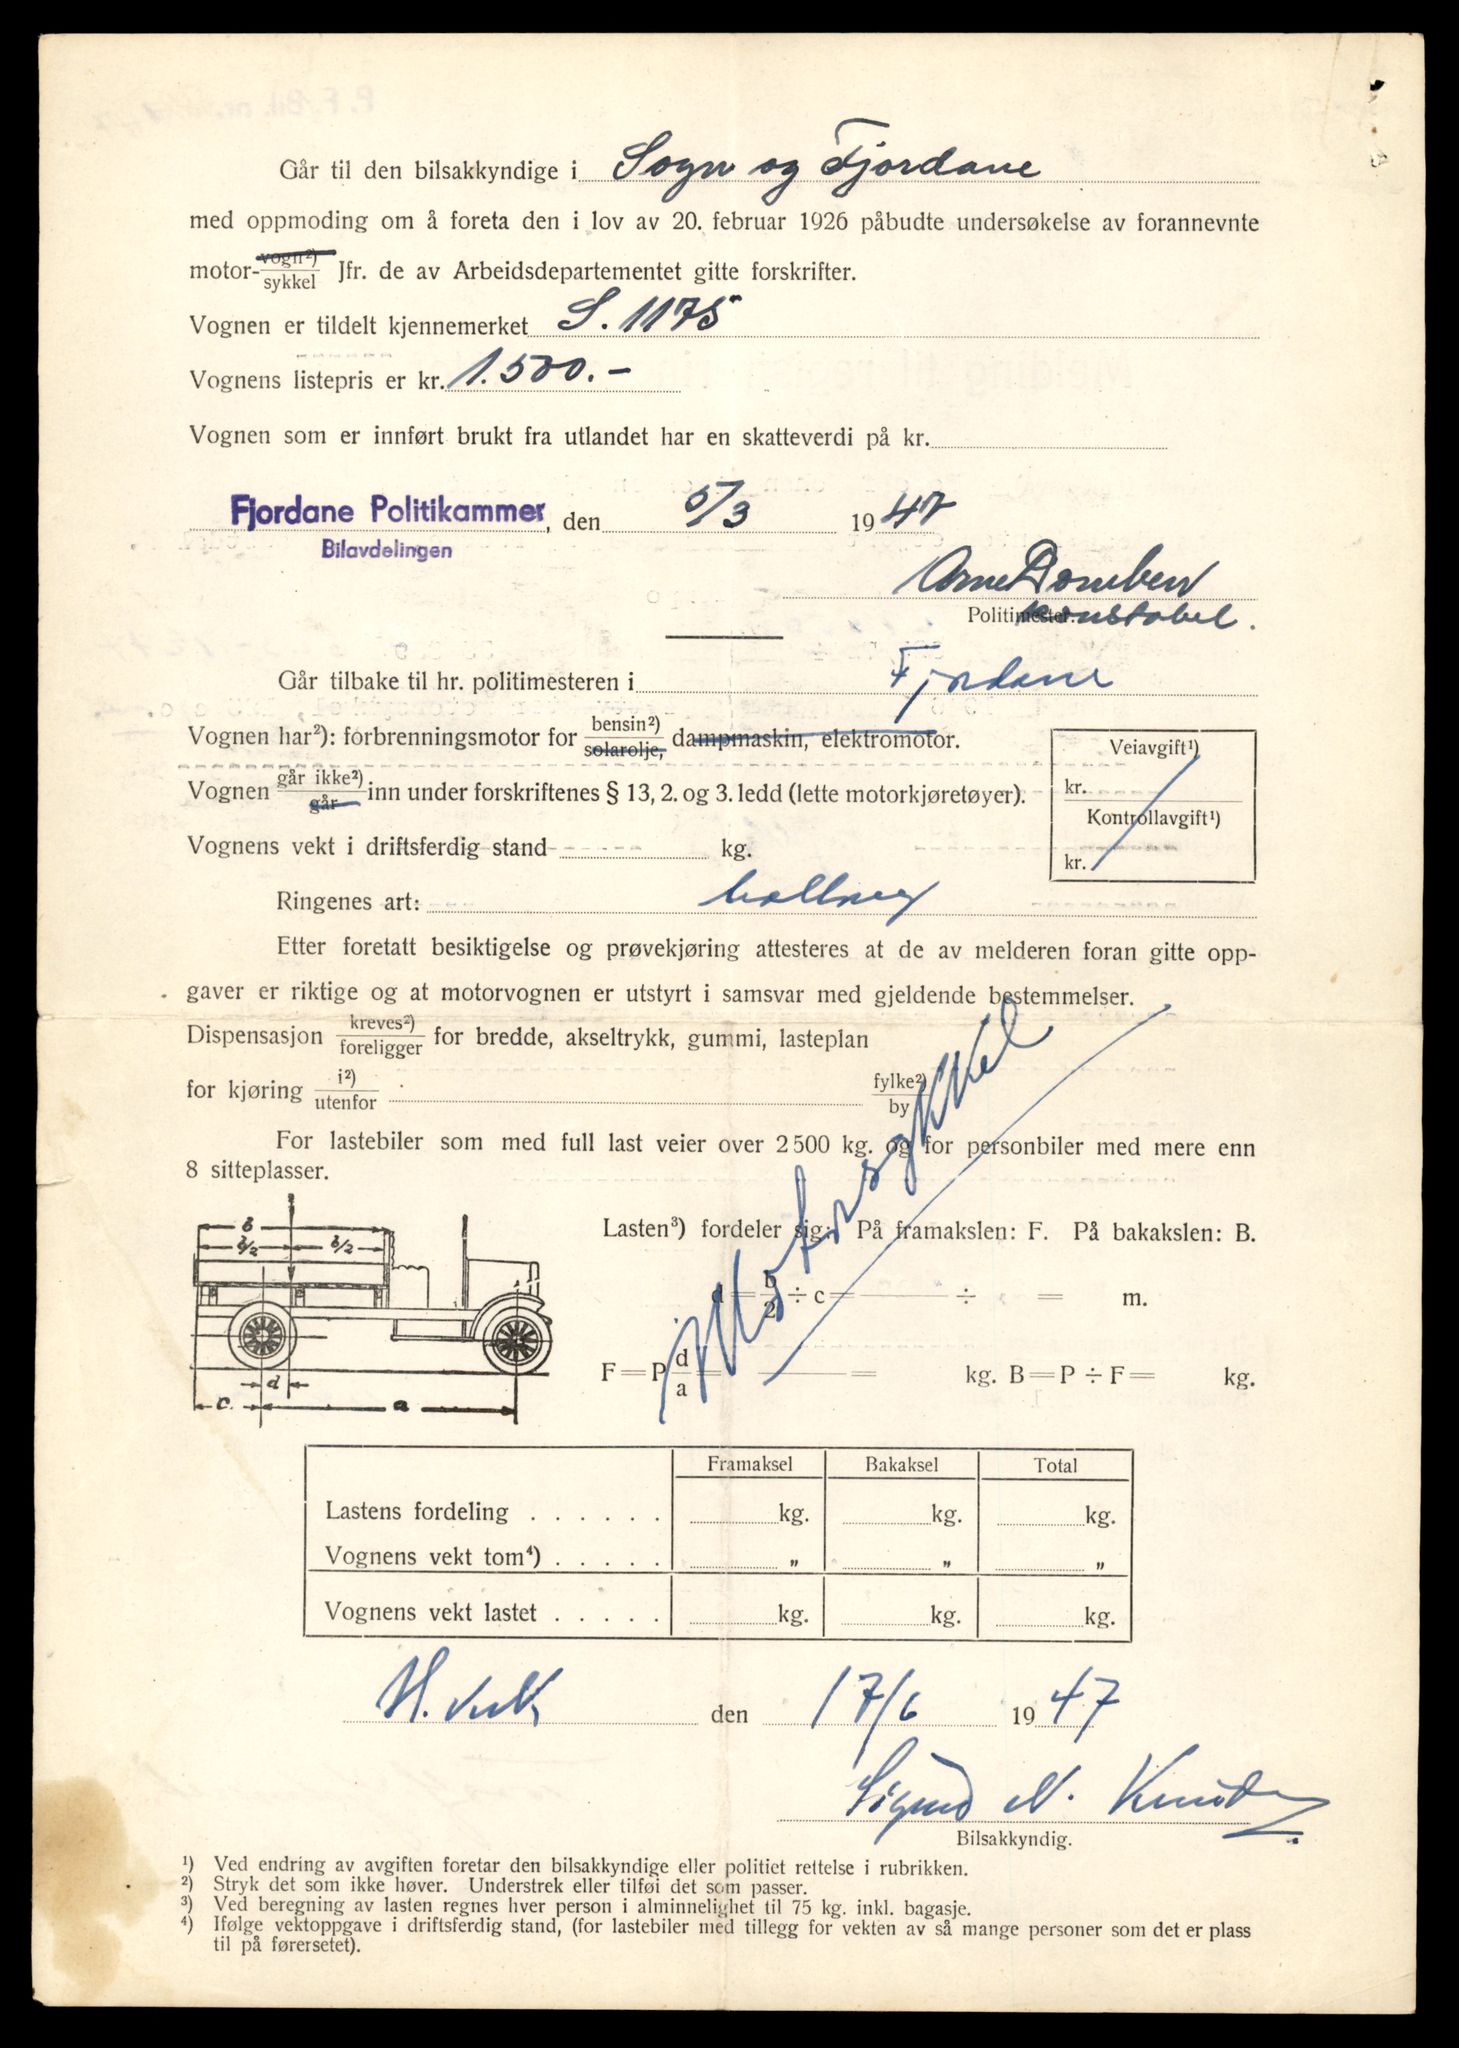 Går til den bilsakkyndige i Sogn og Fjordane
med oppmoding om å foreta den i lov av 20. februar 1926 påbudte undersøkelse av forannevnte
motor- vogn²) / sykkel Jfr. de av Arbeidsdepartementet gitte forskrifter.
Vognen er tildelt kjennemerket S. 1175
Vognens listepris er kr. 1.500.-
Vognen som er innført brukt fra utlandet har en skatteverdi på kr.
Fjordane Politikammer, den 5/3 1947
Bilavdelingen
Arne
Politimester. Konstabel.
Går tilbake til hr. politimesteren i Fjordane
Vognen har²): forbrenningsmotor for bensin²) / solarolje, dampmaskin, elektromotor.
Veiavgift¹)
kr.
Kontrollavgift¹)
kr.
Vognen går ikke²) / går inn under forskriftenes § 13, 2. og 3. ledd (lette motorkjøretøyer).
Vognens vekt i driftsferdig stand kg.
Ringenes art:
Etter foretatt besiktigelse og prøvekjøring attesteres at de av melderen foran gitte opp-
gaver er riktige og at motorvognen er utstyrt i samsvar med gjeldende bestemmelser.
Dispensasjon kreves²) / foreligger for bredde, akseltrykk, gummi, lasteplan
for kjøring i²) / utenfor fylke²) / by
Motorsykkel
For lastebiler som med full last veier over 2500 kg. og for personbiler med mere enn
8 sitteplasser.
b
b/2 b/2
d
c. a
Lasten³) fordeler sig: På framakslen: F. På bakakslen: B.
d = b/2 ÷ c = ÷ = m.
F = P d/a = = kg. B = P ÷ F = kg.
Framaksel Bakaksel Total
Lastens fordeling . . . . . . kg. kg. kg.
Vognens vekt tom⁴) . . . . . „ „ „
Vognens vekt lastet . . . . . kg. kg. kg.
den 17/6 1947
Sigurd N.
Bilsakkyndig.
¹) Ved endring av avgiften foretar den bilsakkyndige eller politiet rettelse i rubrikken.
²) Stryk det som ikke høver. Understrek eller tilføi det som passer.
³) Ved beregning av lasten regnes hver person i alminnelighet til 75 kg. inkl. bagasje.
⁴) Ifølge vektoppgave i driftsferdig stand, (for lastebiler med tillegg for vekten av så mange personer som det er plass
til på førersetet).